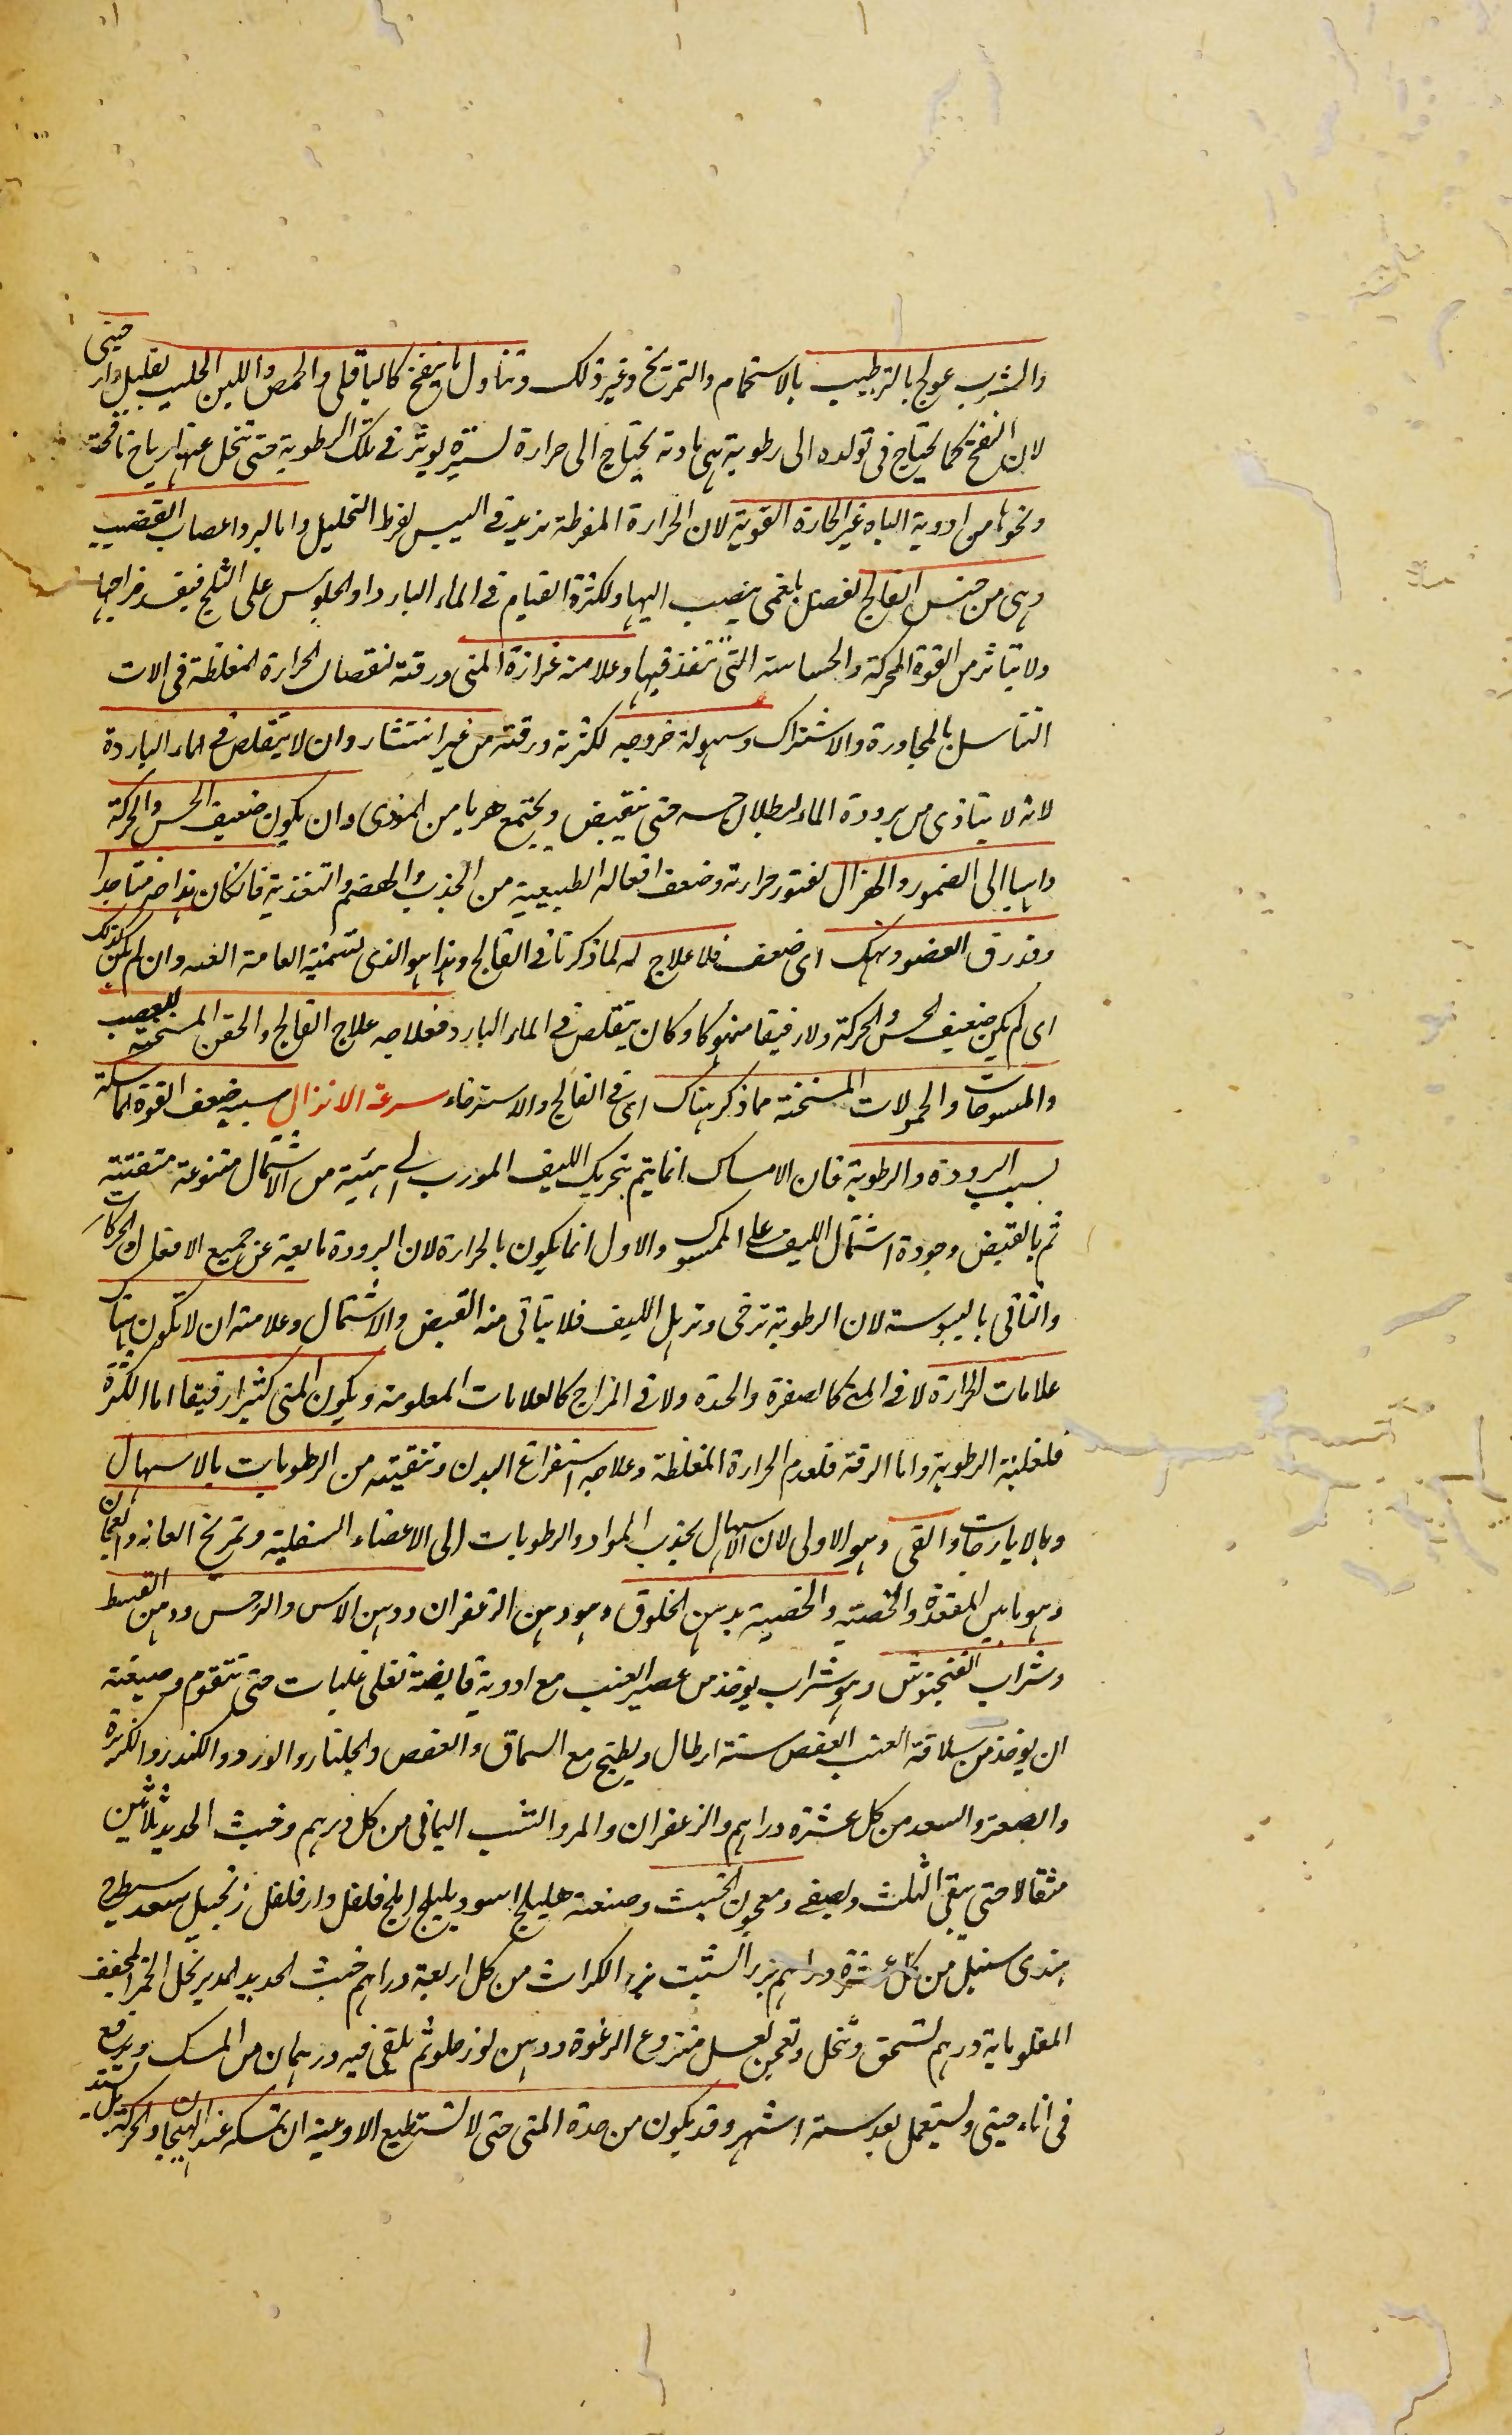 والشرب عولج بالترطيب بالاستحمام والتمريخ وغير ذلك وتناول ما ينفخ كالباقلى والحمص واللبن الحليب بقليل دار صينى
لان النفخ كما يحتاج فى تولده الى رطوبة هى مادته يحتاج الى حرارة يسيرة يوثر فى تلك الرطوبة حتى تنحل عنها رياح نافخة
ونحوها من ادوية الباه غير الحارة القوية لان الحرارة المفرطة تزيد فى اليبس لفرط التحليل واما لبرد اعصاب القضيب
وهى من جنس الفالج لفضل بلغمى ينصب اليها ولكثرة القيام فى الماء البارد او الجلوس على الثلج فيفسد مزاجها
ولا يتاثر من القوة المحركة والحساسة التى تنفذ فيها وعلامته غزارة المنى ورقته لنقصان الحرارة المغلظة فى الات
التناسل بالمجاورة والاشتراك وسهولة خروجه لكثرته ورقته من غير انتشار وان لا يتقلص فى الماء الباردة
لانه لا يتاذى من برودة الماء لبطلان حسه حتى ينقبض ويجتمع هربا من الموذى وان يكون ضعيف الحس والحركة
ذاهبا الى الضمور والهزال لفتور حرارته وضعف افعاله الطبيعية من الجذب والهضم والتغذية فان كان هذا ضربا جدا
وقد رق العضو ونهك اى ضعف فلا علاج له لما ذكرنا فى الفالج وهذا هو الذى تسميه العامة العنه وان لم يكن كذلك
اى لم يكن ضعيف الحس والحركة ولا رقيقا منهوكا وكان يتقلص فى الماء البارد فعلاجه علاج الفالج والحقن المسخنة للعصب
والمسوحات والحمولات المسخنة مما ذكر هناك اى فى الفالج والاسترخاء سرعة الانزال سببه ضعف القوة الماسكة
بسبب البرودة والرطوبة فان الامساك انما يتم بتحريك الليف المورب الى هيئية من الاشتمال متنوعة متفننة
ثم بالقبض وجودة اشتمال الليف على الممسوك والاول انما يكون بالحرارة لان البرودة مانعة عن جميع الافعال والحركات
والثانى باليبوسة لان الرطوبة ترخى وترهل الليف فلا يتاتى منه القبض والاشتمال وعلامته ان لا تكون هناك
علامات الحرارة لا فى المنى كالصفرة والحدة ولا فى المزاج كالعلامات المعلومة ويكون المنى كثيرا رقيقا اما الكثرة
فلغلبة الرطوبة واما الرقة فلعدم الحرارة المغلظة وعلاجه استفراغ البدن وتنقيته من الرطوبات بالاسهال
وبالايارجات والقى وهو الاولى لان الاسهال يجذب المواد والرطوبات الى الاعضاء السفلية وتمريخ العانه والعجان
وهو ما بين المقعدة والخصيه والخصية بدهن الخلوق وهو دهن الزعفران ودهن الاس والنرجس ودهن القسط
وشراب الفنجنوش وهو شراب يوخذ من عصير العنب مع ادوية قابضة تغلى غليات حتى تتقوم وصنعته
ان يوخذ من سلاقة العنب العفص ستة ارطال ويطبخ مع السماق والعفص والجلنار والورد والكندر والكزبرة
والصعتر والسعد من كل عشرة دراهم والزعفران والمر والشب اليمانى من كل درهم وخبث الحديد ثلاثين
مثقالا حتى يبقى الثلث ويصفى ومعجون الخبث وصنعته هليلج اسود بليلج املج فلفل دار فلفل زنجبيل سعد شيطرج
هندى سنبل من كل عشرة دراهم بزر الشبت بزر الكراث من كل اربعة دراهم خبث الحديد المدبر بخل الخمر المجفف
المقلو ماية درهم تسحق وتنخل وتعجن بعسل منزوع الرغوة ودهن لوز حلو ثم يلقى فيه درهمان من المسك ويرفع
فى اناء صينى ويستعمل بعد ستة اشهر وقد يكون من حدة المنى حتى لا تستطيع الاوعية ان تمسكه عند الهيجان والحركة بل